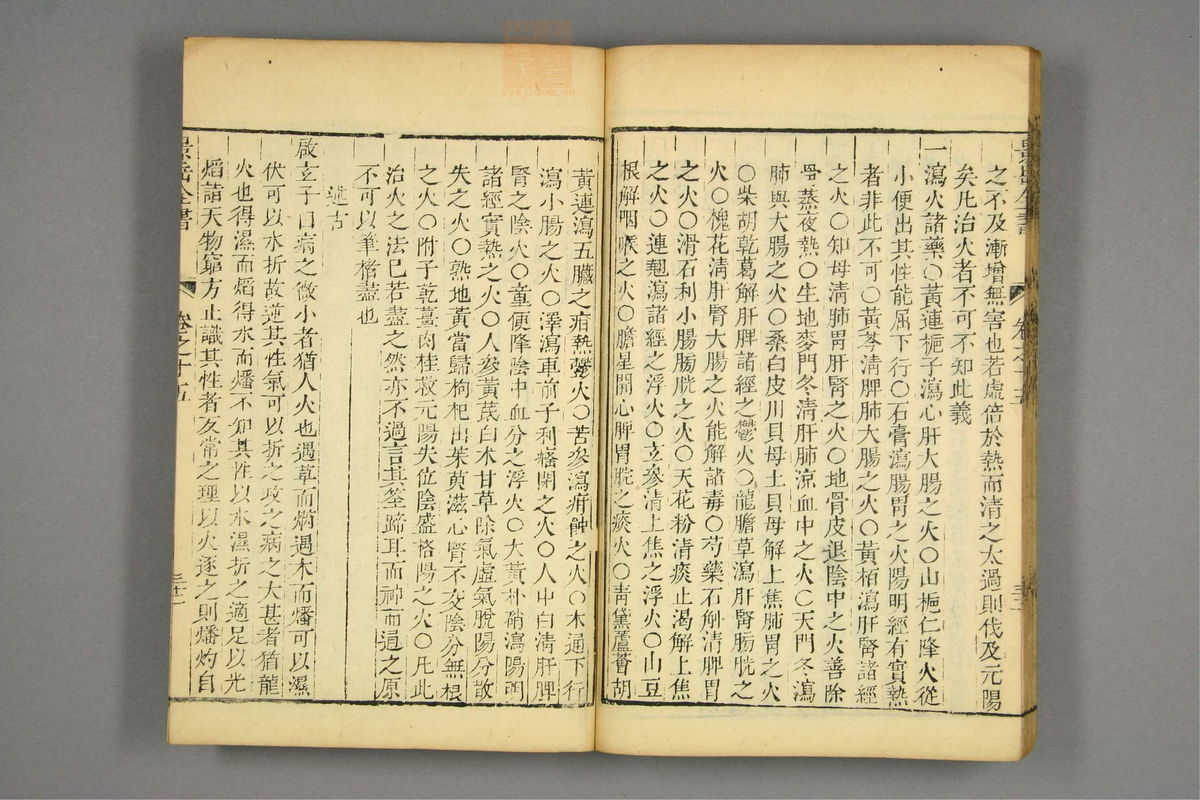 之不及漸增無害也若虛倍於熱而清之太過則伐及元陽
矣凡治火者不可不知此義
一瀉火諸藥○黃連梔子瀉心肝大腸之火○山梔仁降火從
小便出其性能屈下行○石膏瀉腸胃之火陽明經有實熱
者非此不可○黃芩清脾肺大腸之火○黃栢瀉肝腎諸經
之火○知母清肺胃肝腎之火○地骨皮退陰中之火善除
骨蒸夜熱○生地麥門冬清肝肺涼血中之火○天門冬瀉
肺與大腸之火○桑白皮川貝母土貝母解上焦肺胃之火
○柴胡乾葛解肝脾諸經之鬱火○龍膽草瀉肝腎膀胱之
火○槐花清肝腎大腸之火能解諸毒○芍藥石斛清脾胃
之火○滑石利小腸膀胱之火○天花粉清痰止渴解上焦
之火○連翹瀉諸經之浮火○玄參清上焦之浮火○山豆
根解咽喉之火○膽星開心脾胃脘之痰火○青黛蘆薈胡
黃連瀉五臟之疳熱鬱火○苦參瀉疳蝕之火○木通下行
瀉小腸之火○澤瀉車前子利癃閉之火○人中白清肝脾
腎之陰火○童便降陰中血分之浮火○大黃朴硝瀉陽明
諸經實熱之火○人參黃茋白朮甘草除氣虛氣脫陽分散
失之火○熟地黃當歸枸杞山茱萸滋心腎不交陰分無根
之火○附子乾薑肉桂救元陽失位陰盛格陽之火○凡此
治火之法已若盡之然亦不過言其筌蹄耳而神而通之原
不可以筆楮盡也
述古
啟玄子曰病之微小者猶人火也遇草而焫遇木而燔可以濕
伏可以水折故逆其性氣可以折之攻之病之大甚者猶龍
火也得濕而熖得水而燔不知其性以水濕折之適足以光
熖詣天物窮方止識其性者反常之理以火逐之則燔灼自
景岳全書
卷之十五